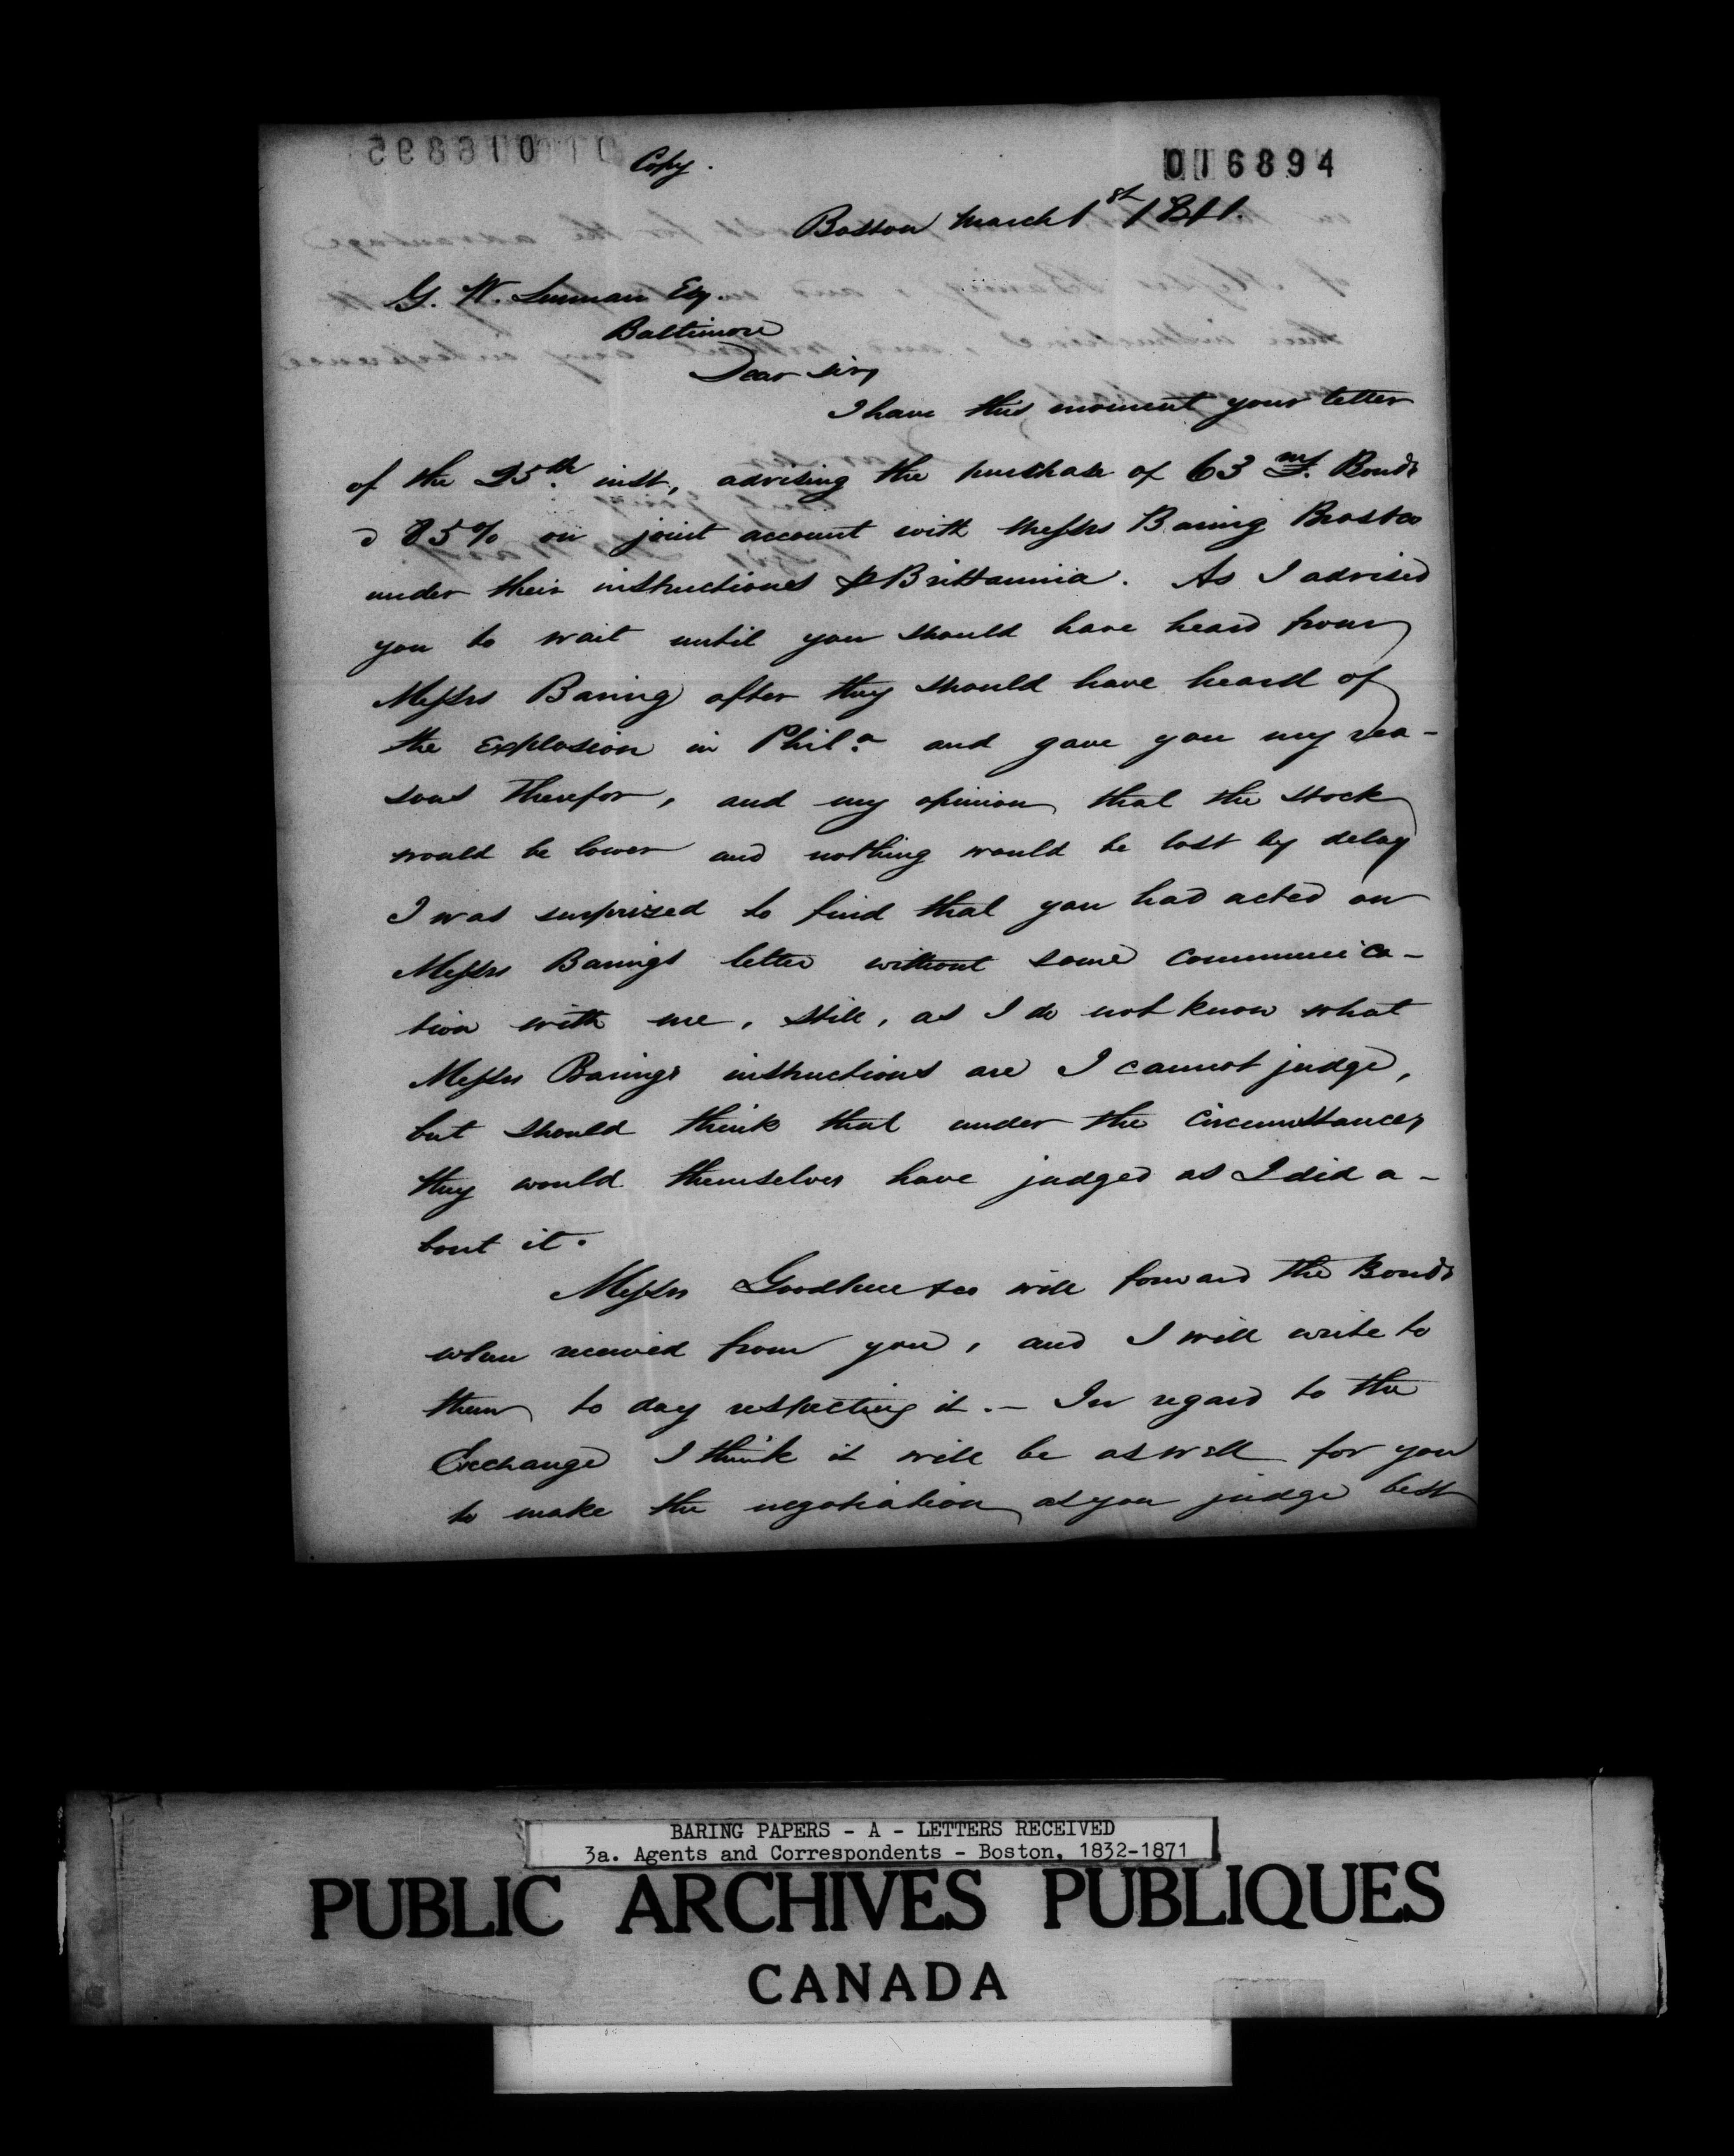 016894
Copy.
Boston March 1st 1841.
G. W. Lurman Esq.
Baltimore
Dear Sir,
I have this moment your letter
of the 25th. inst, advising the purchase of 63 Bonds
85% on joint account with Messrs Baring Bros & Co
under their instructions p Brittannia. As I advised
you to wait until you should have heard from
Messrs Baring after they should have heard of
the Explosion in Phila. and gave you my rea-
sons therefor, and my opinion that the stock
would be lower and nothing would be lost by delay
I was surprized to find that you had acted on
Messrs Barings letter without some communica-
tion with me, still, as I do not know what
Messrs Barings instructions are I cannot judge,
but should think that under the circumstances
they would themselves have judged as I did a-
bout it.
Messrs Goodhue & Co will forward the Bonds
when received from you, and I will write to
them to day respecting it. — In regard to the
Exchange I think it will be as well for you
to make the negotiation as you judge best
BARING PAPERS - A - LETTERS RECEIVED
3a. Agents and Correspondents - Boston, 1832-1871
PUBLIC ARCHIVES PUBLIQUES
CANADA